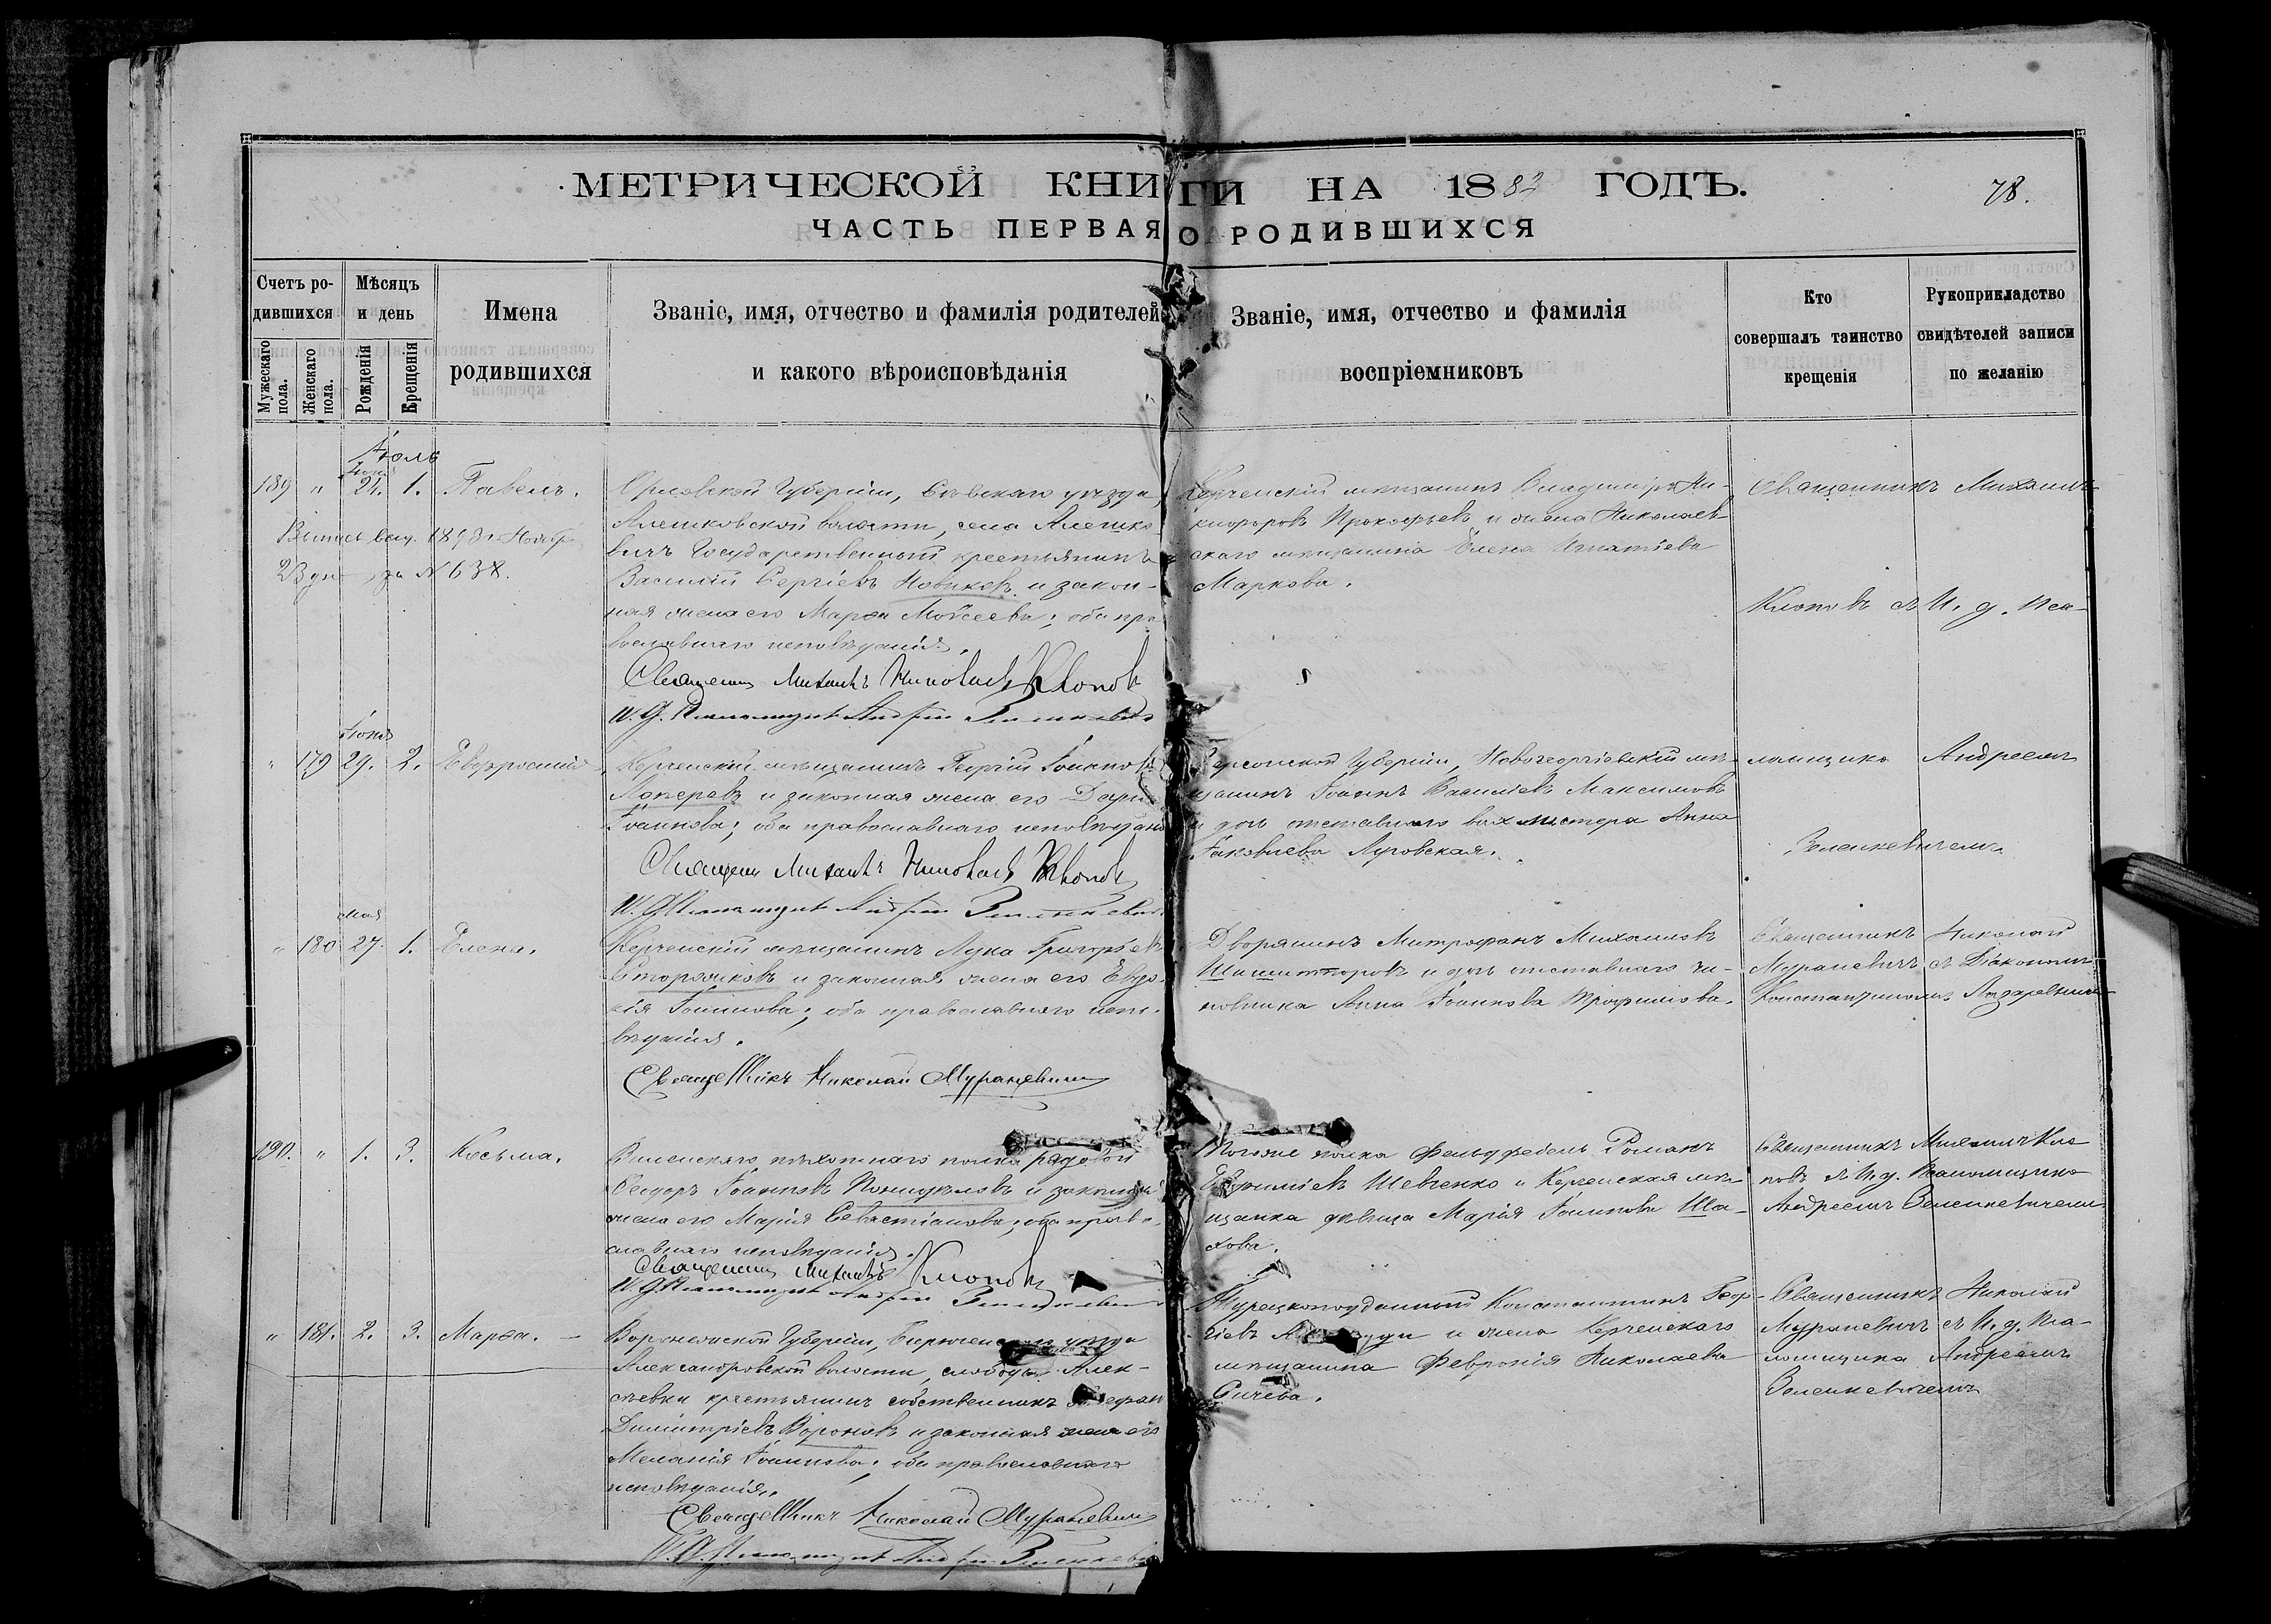 МЕТРИЧЕСКОЙ КНИГИ НА 1882 ГОДЪ.
78.
ЧАСТЬ ПЕРВАЯ О РОДИВШИХСЯ
Счетъ ро-
дившихся
Мужескаго пола.
Женскаго пола.
Мѣсяцъ
и день
Рожденія
Крещенія
Имена
родившихся
Званіе, имя, отчество и фамилія родителей
и какого вѣроисповѣданія
Званіе, имя, отчество и фамилія
воспріемниковъ
Кто
совершалъ таинство
крещенія
Рукоприкладство
свидѣтелей записи
по желанію
Іюль
189 " Іюня 24. 1. Павелъ.
за № 638.
Орловской Губерніи, Сѣвскаго уѣзда,
Алешковской волости, села Алешко
вичъ Государственный крестьянинъ
Василій Сергіевъ Новиковъ и закон-
ная жена его Марѳа Моѵсеева; оба пра
вославнаго исповѣданія.
Священникъ Михаилъ Николаевъ Клоповъ
И. д. Псаломщика Андрей Зеленкевичъ
Керченскій мѣщанинъ Владиміръ Ни-
кифоровъ Прокофьевъ и жена Николаев-
скаго мѣщанина Елена Игнатіева
Маркова.
Священникъ Михаилъ
Клоповъ съ И. д. Пса-
" 179 Іюня 29. 2. Евфросинія
Керченскій мѣщанинъ Георгій Іоанновъ
и законная жена его Дарія
Іоаннова; оба православнаго исповѣданія
Священникъ Михаилъ Николаевъ Клоповъ
И. д. Псаломщика Андрей Зеленкевичъ
Херсонской Губерніи, Новогеоргіевскій мѣ-
щанинъ Іоаннъ Василіевъ Максимовъ
и дочь отставнаго вахмистера Анна
Іаковлева
ломщика Андреемъ
Зеленкевичемъ
" 180 мая 27. 1. Елена.
Керченскій мѣщанинъ Лука Григорьевъ
Сторожиковъ и законная жена его Евдо-
кія Іоаннова; оба православнаго испо-
вѣданія.
Священникъ Николай Мураневичъ
Дворянинъ Митрофанъ Михаиловъ
и дочь отставнаго чи-
новника Анна Іоаннова Трофимова.
Священникъ Николай
Мураневичъ съ Діакономъ
Константиномъ Лазаревичемъ
190. " 1. 3. Косьма.
Виленскаго пѣхотнаго полка рядовой
Ѳеодоръ Іоанновъ и законная
жена его Марія Севастіанова; оба право-
славнаго исповѣданія.
Священникъ Михаилъ Клоповъ
И. д. Псаломщика Андрей Зеленкевичъ
Тогоже полка Фельдфебель Романъ
Евфиміевъ Шевченко и Керченская мѣ-
щанка дѣвица Марія Іоаннова Ша-
хова.
Священникъ Михаилъ Кло
повъ съ И. д. Псаломщика
Андреемъ Зеленкевичемъ
" 181. 2. 3. Марѳа.
Воронежской Губерніи, Бирюченскаго уѣзда
Александровской волости, слободы Алек-
сѣевки крестьянинъ собственникъ Стефанъ
Димитріевъ Вороновъ и законная жена его
Меланія Іоаннова; оба православнаго
исповѣданія.
Священникъ Николай Мураневичъ
И. д. Псаломщика Андрей Зеленкевичъ
Турецкоподданный Константинъ Геор-
гіевъ и жена Керченскаго
мѣщанина Февронія Николаева
Сичева.
Священникъ Николай
Мураневичъ съ И. д. Пса-
ломщика Андреемъ
Зеленкевичемъ